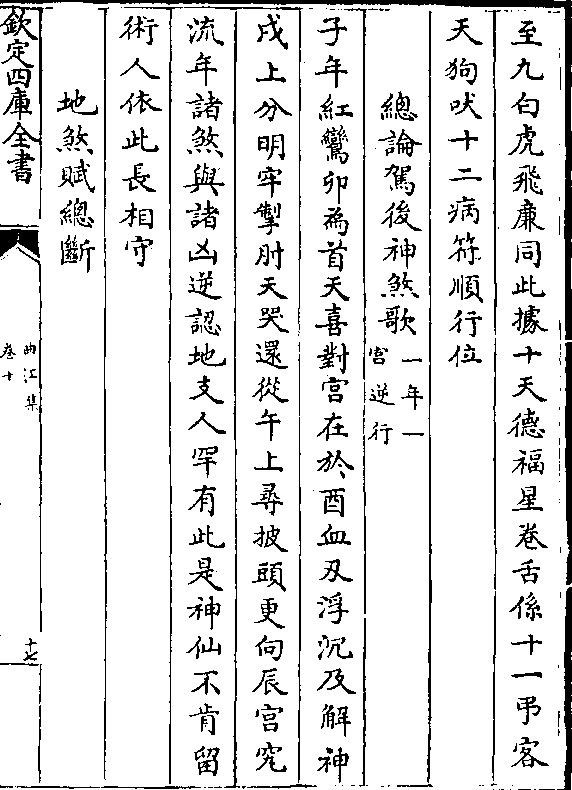 至九白虎飛廉同此據十天德福星卷舌係十一弔客
天狗吠十二病符順行位
總論駕後神煞歌一年一
宮逆行
子年紅鸞卯為首天喜對宮在於酉血刄浮沉及解神
戌上分明牢掣肘天哭還從午上尋披頭更向辰宮究
流年諸煞與諸凶逆認地支人罕有此是神仙不肯留
術人依此長相守
地煞賦總斷
欽定四庫全書
曲江集
卷十
十七